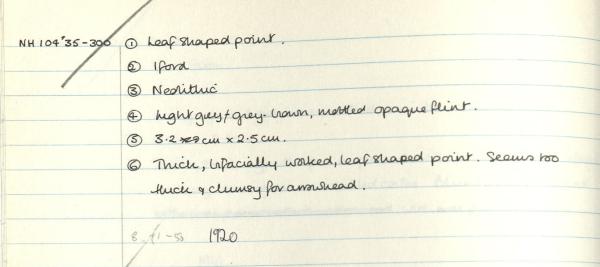 NH 104°35-300 ① Leaf shaped point.
② Iford
③ Neolithic
④ Light grey/grey-brown, mottled opaque flint.
⑤ 3.2 cm x 2.5 cm.
⑥ Thick, bifacially worked, leaf shaped point. Seems too
thick & clumsy for arrowhead.
1920